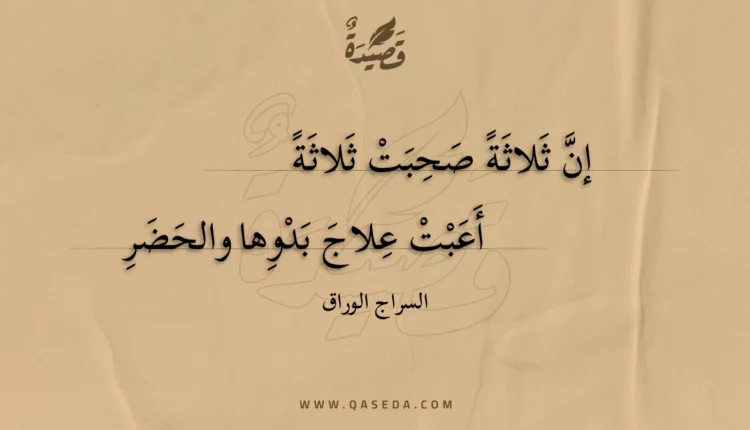 قَصِيْدَةٌ
إنَّ ثَلاثَةً صَحِبَتْ ثَلاثَةً
أَعَبْتْ عِلاجَ بَدْوِها والحَضَرِ
السراج الوراق
WWW.QASEDA.COM